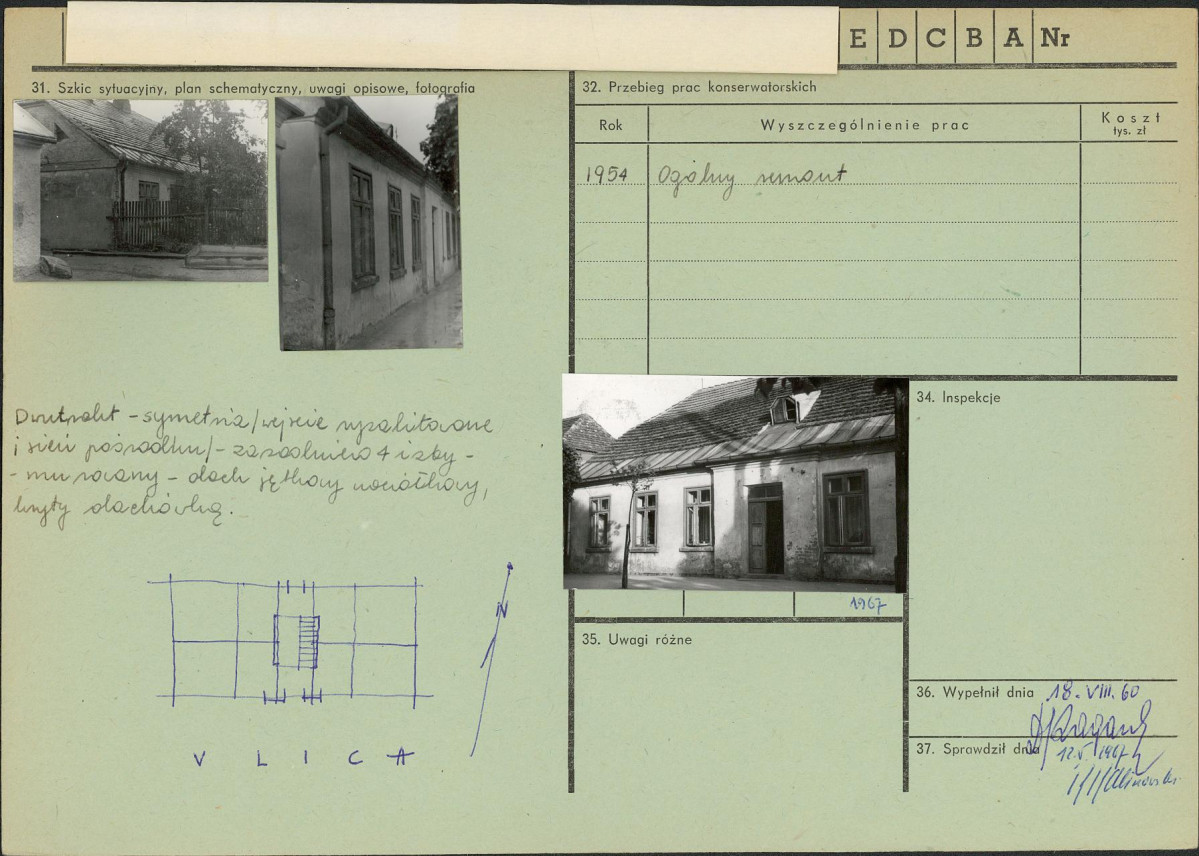 E D C B A Nr
31. Szkic sytuacyjny, plan schematyczny, uwagi opisowe, fotografia
Dwutrakt - symetria /wejście ryzalitowane
i sień pośrodku/ - zasadniczo 4 izby -
- murowany - dach jętkowy naciółkowy,
kryty dachówką.
N
V L I C A
32. Przebieg prac konserwatorskich
Rok Wyszczególnienie prac Koszt
tys. zł
1954 Ogólny remont
1967
34. Inspekcje
35. Uwagi różne
36. Wypełnił dnia 18. VIII. 60
37. Sprawdził dnia 12.V.1967